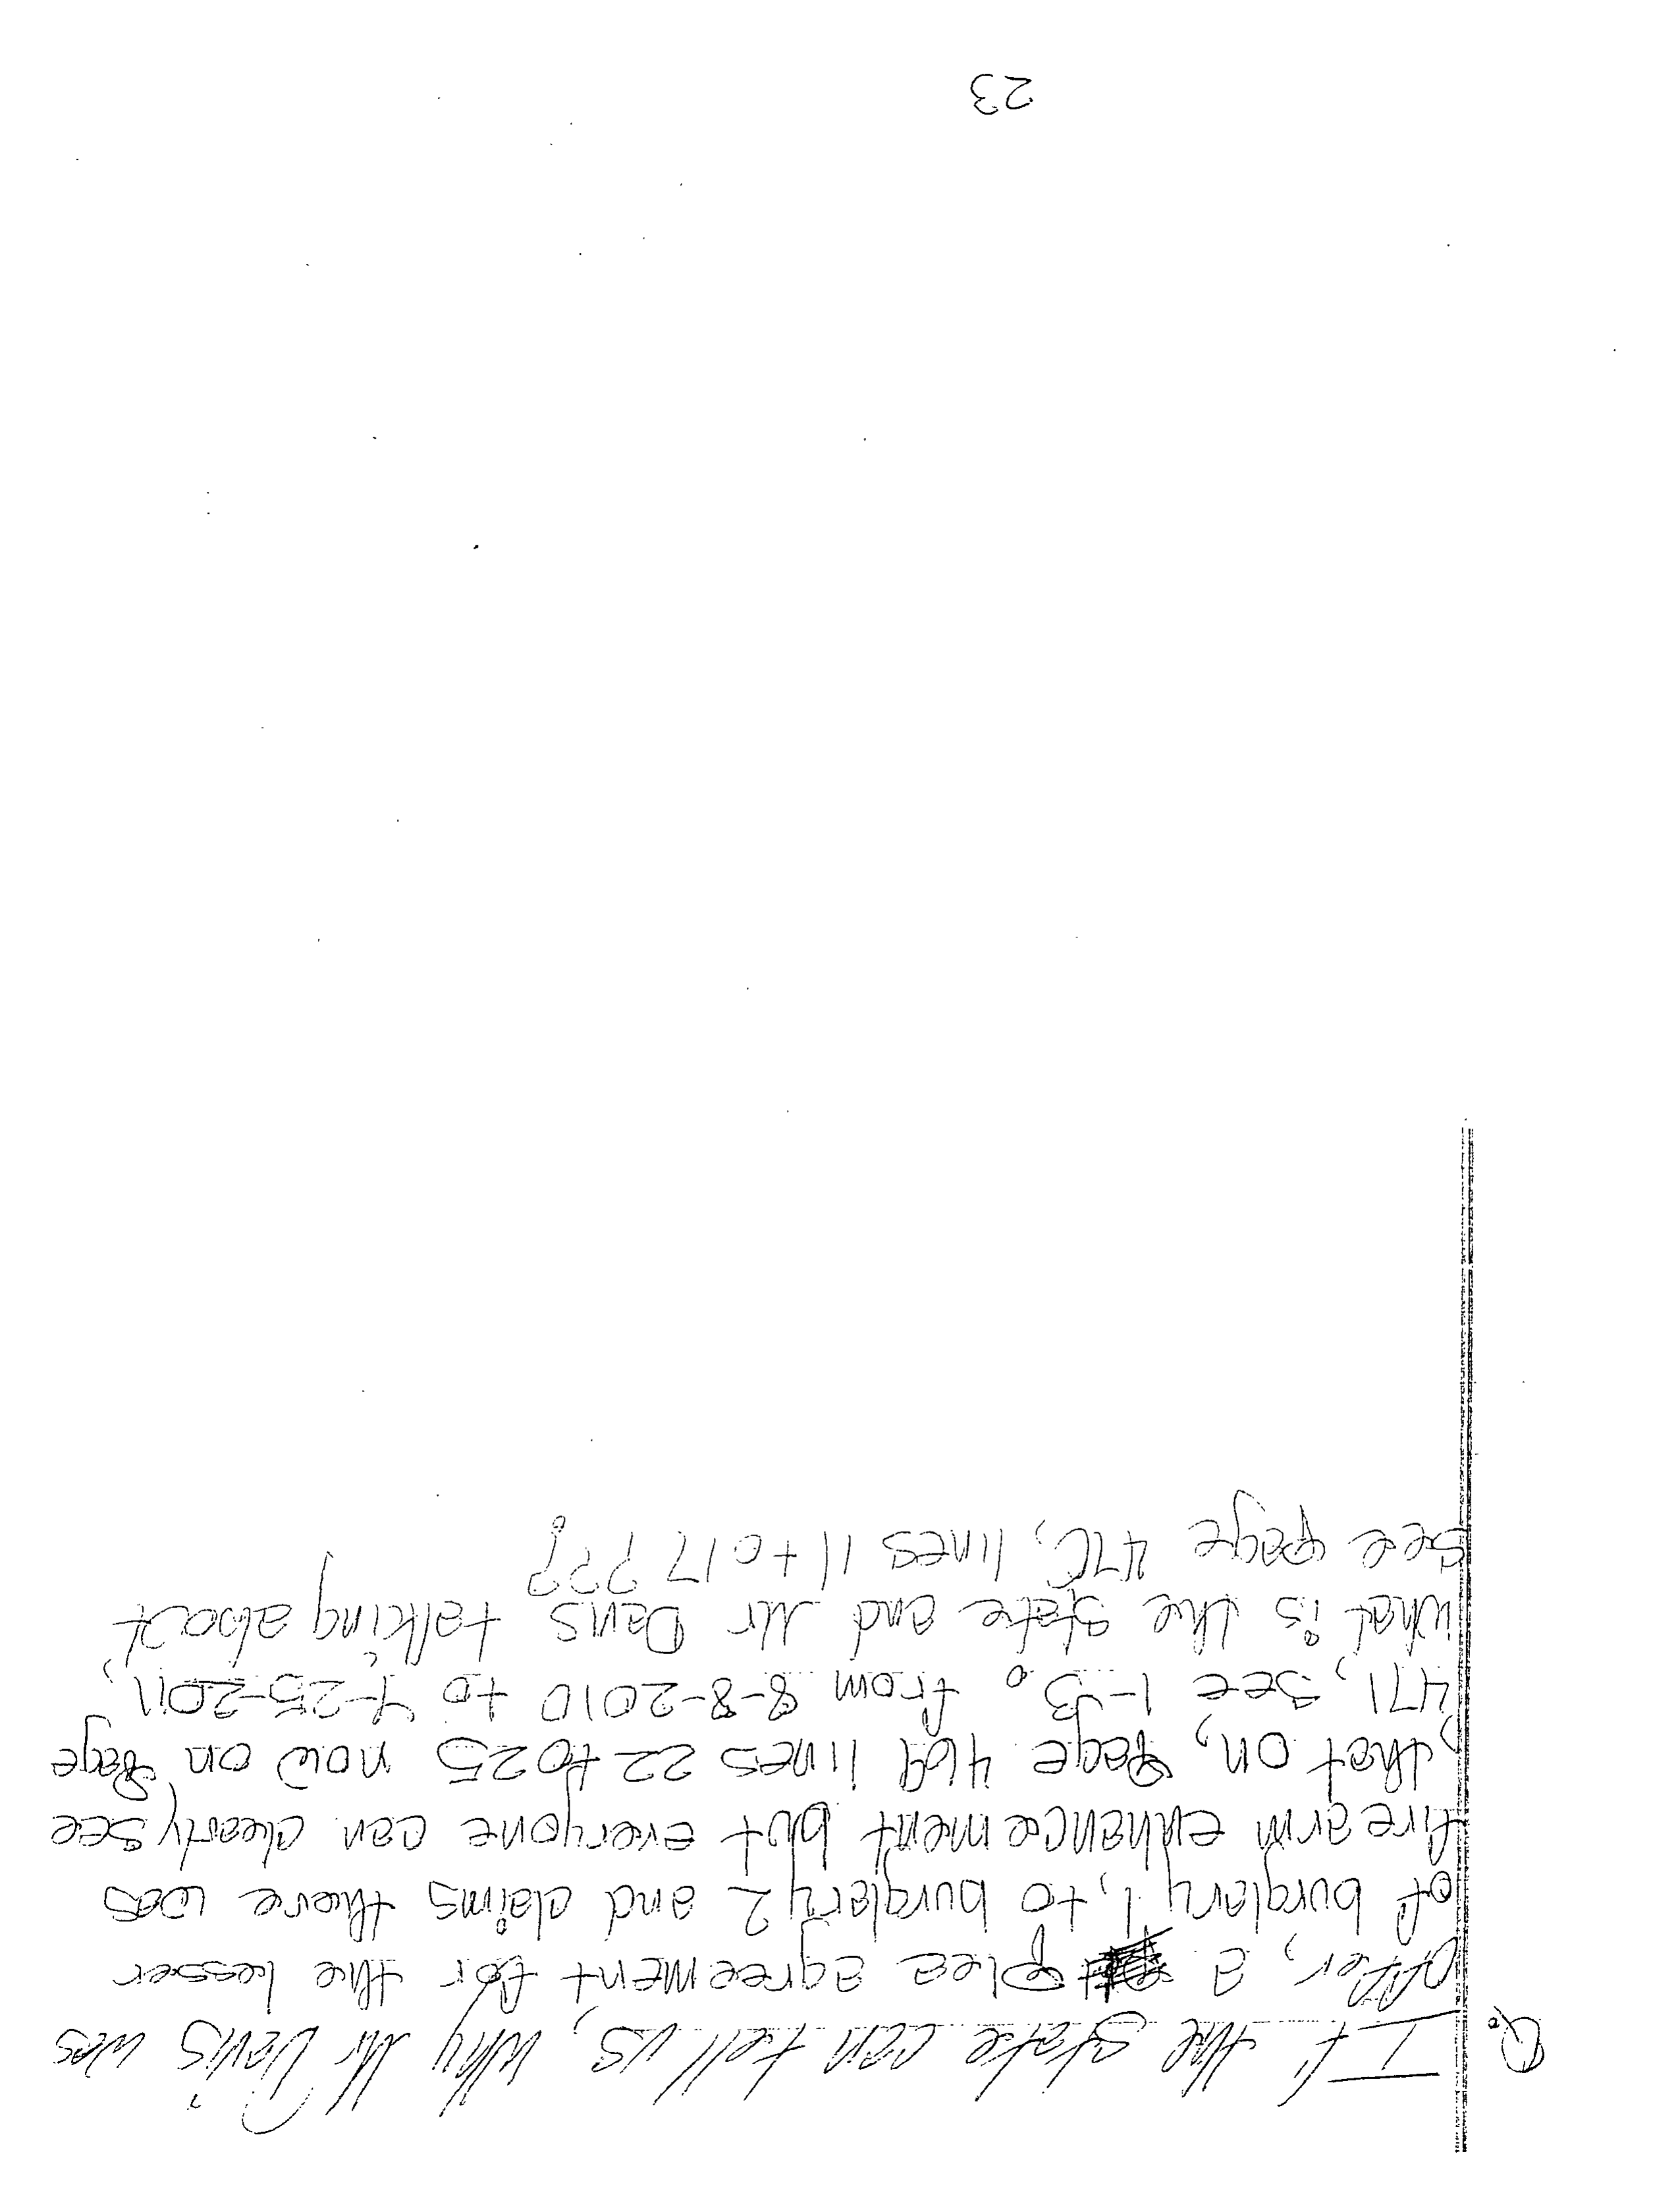 Q. If the state can tell us, why Mr Davis was
offer, a plea agreement for the lesser
of burglary 1, to burglary 2 and claims there was
firearm enhancement but everyone can clearly see
that on, Page 469 lines 22 to 25 now on Page
471, see 1-3. from 8-8-2010 to 4-25-2011,
what is the state and Mr Davis talking about
see page 476, lines 11 to 17 ???
23